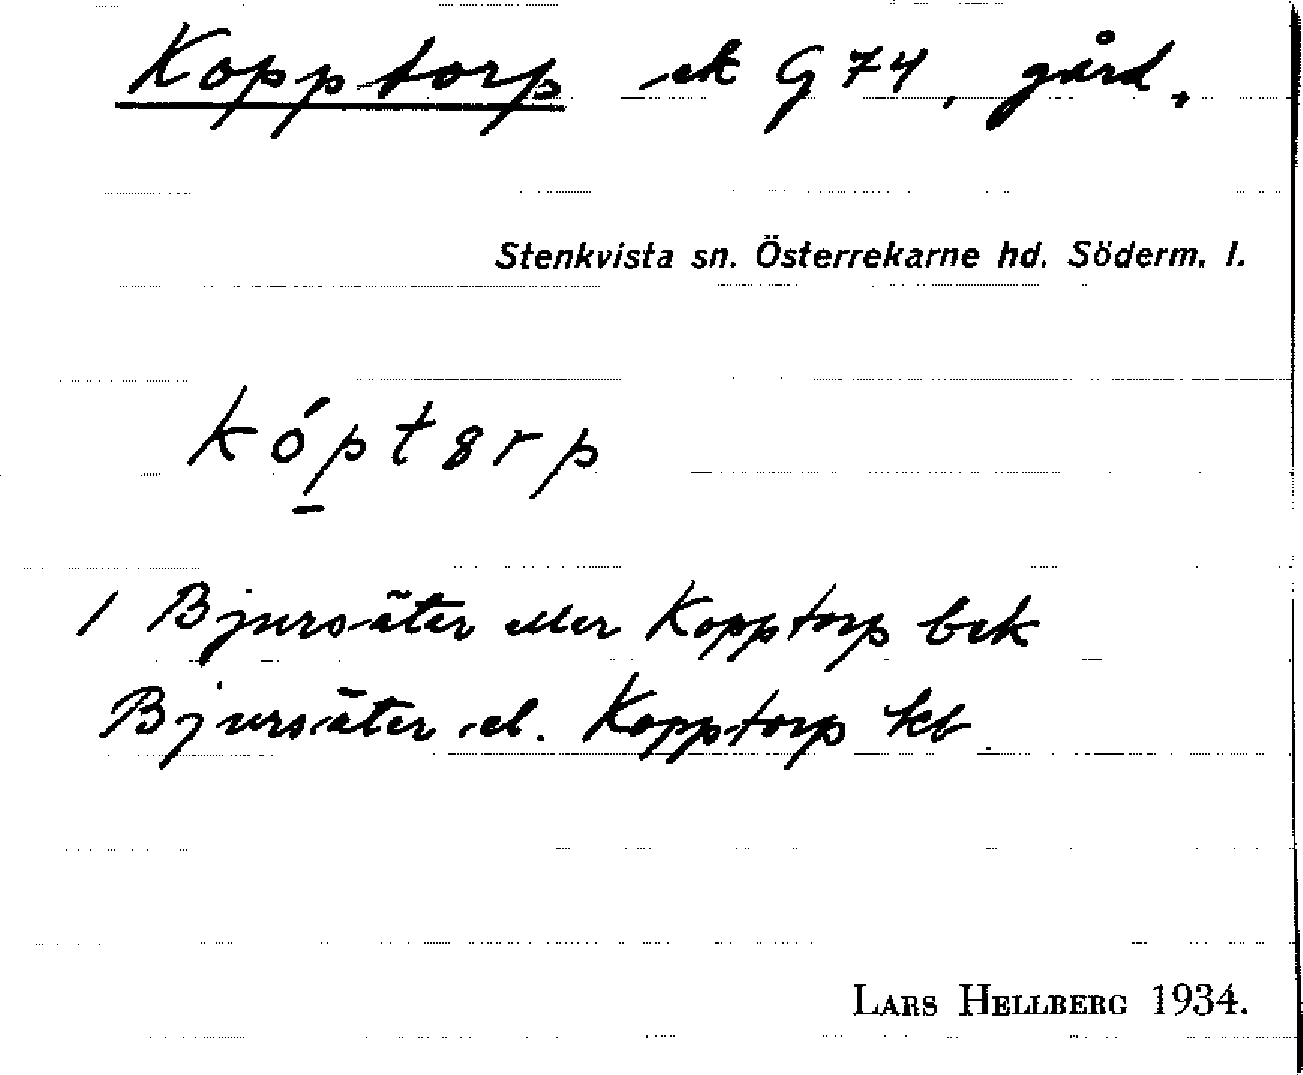 Kopptorp ek G 74, gård.
Stenkvista sn. Österrekarne hd. Söderm. l.
kóptȣrp
/ Bjursäter eller Kopptorp bek
Bjursäter el. Kopptorp kb
LARS HELLBERG 1934.